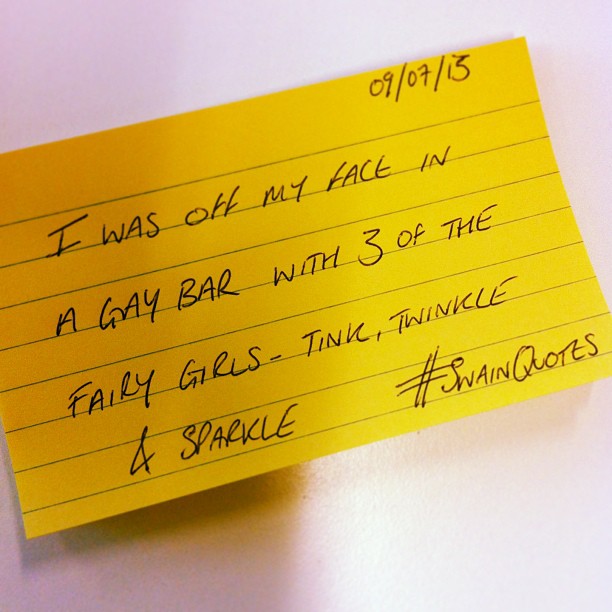 09/07/13
I WAS OFF MY FACE IN
A GAY BAR WITH 3 OF THE
FAIRY GIRLS - TINK, TWINKLE
& SPARKLE #SWAINQUOTES